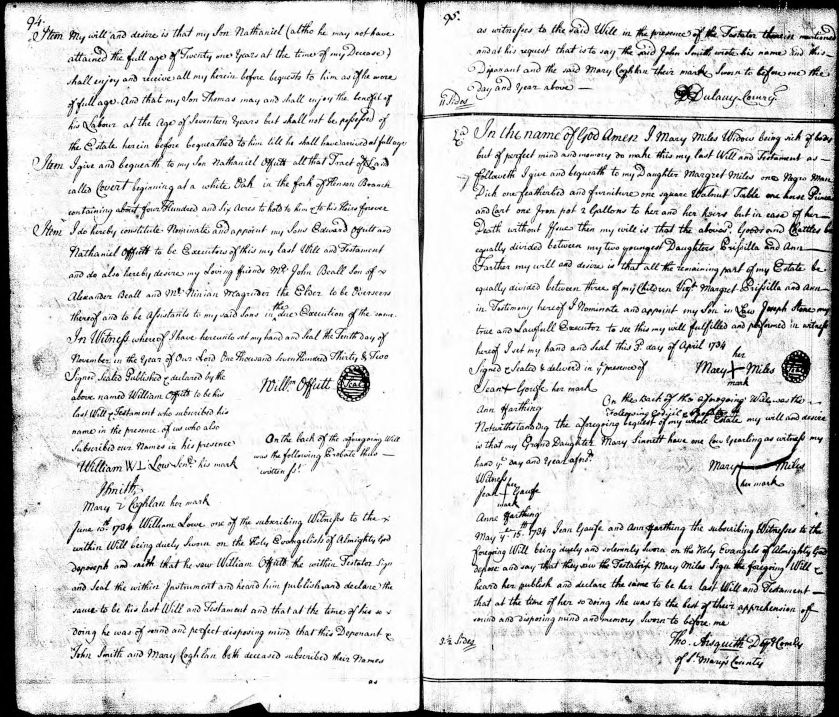 94.
Item My will and desire is that my Son Nathaniel (altho he may not have
attained the full age of Twenty one Years at the time of my Decease)
shall enjoy and receive all my herein before bequests to him as if he were
of full age. And that my Son Thomas may and shall enjoy the benefit of
his Labour at the age of Seventeen Years but shall not be possessed of
the Estate herein before bequeathed to him till he shall have arrived at full age
Item I give and bequeath to my Son Nathaniel Offutt all that Tract of Land
called Covert beginning at a white Oak in the fork of Henson Branch
containing about four Hundred and Six Acres to hold to him & to his Heirs forever
Item I do hereby constitute Nominate and appoint my Sons Edward Offutt and
Nathaniel Offutt to be Executors of this my last Will and Testament
and do also hereby desire my Loving friends Mr. John Beall Son of
Alexander Beall and Mr. Ninian Magruder the Elder to be Overseers
thereof and to be Assistants to my said Sons in the due Execution of the same.
In Witness whereof I have hereunto set my hand and Seal the Tenth day of
November in the Year of Our Lord One Thousand Seven Hundred Thirty & Two
Signed Sealed Published & declared by the
above named William Offutt to be his
last Will & Testament who subscribed his
name in the presence of us who also
Subscribed our Names in his presence
Willm Offutt Seal
On the back of the aforegoing Will
was the following Probate thus
written ss.
William W L Low Senr. his mark
J Smith
Mary 2 Coghlan her mark
June 10th. 1734 William Lowe one of the subscribing Witnesses to the
within Will being duely Sworn on the Holy Evangelists of Almighty God
deposeth and saith that he saw William Offutt the within Testator Sign
and Seal the within Instrument and heard him publish and declare the
same to be his last Will and Testament and that at the time of his so
doing he was of sound and perfect disposing mind that this Deponant &
John Smith and Mary Coghlan both deceased subscribed their Names
as
95.
as witnesses to the said Will in the presence of the Testator therein mentioned
and at his request that is to say the said John Smith wrote his name and this
Deponant and the said Mary Coghlan their mark Sworn to before me the
Day and Year above
11 Sides
D Dulany Comry.
In the name of God Amen I Mary Miles Widow being sick of body
but of perfect mind and memory do make this my last Will and Testament as
followeth I give and bequeath to my Daughter Margret Miles one Negro Man
Dick one featherbed and furniture one square Walnut Table one horse Prince
and Cart one Iron pot 2 Gallons to her and her heirs but in case of her
Death without Issue then my will is that the abovesd. Goods and Chattles be
equally divided between my two youngest Daughters Prisilla and Ann
Farther my will and desire is that all the remaining part of my Estate be
equally divided between three of my Children Vizt. Margret Prisilla and Ann
in Testimony hereof I Nominate and appoint my Son in Law Joseph Stone my
true and Lawfull Executor to see this my will fulfilled and performed in witness
hereof I set my hand and Seal this 3d. day of April 1734
Signed & Sealed & deliverd in ye presence of
Mary her mark Miles
Jean Goufe her mark
Ann Harthing
On the back of the aforegoing Will was the
Following Codicil & Probate
Notwithstanding the aforegoing request of my whole Estate my will and desire
is that my Grand Daughter Mary Sinnett have one Cow Yearling as witness my
hand ye day and Year aforsd.
Mary Miles
her mark
Witness
Jean her mark Goufe
Anne Harthing
May ye 15th 1734 Jean Goufe and Ann Harthing the subscribing Witnesses to the
foregoing Will being duely and solemnly sworn on the Holy Evangels of Almighty God
depose and say that they saw the Testatrix Mary Miles Sign the foregoing Will &
heard her publish and declare the same to be her last Will and Testament
that at the time of her so doing she was to the best of their apprehension of
sound and disposing mind and memory Sworn to before me
3½ Sides
Tho. Aisquith Depy Comry
of St. Marys County